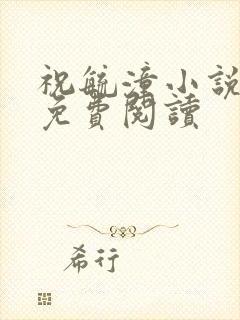 祝毓漳小說
免費閱讀
希行